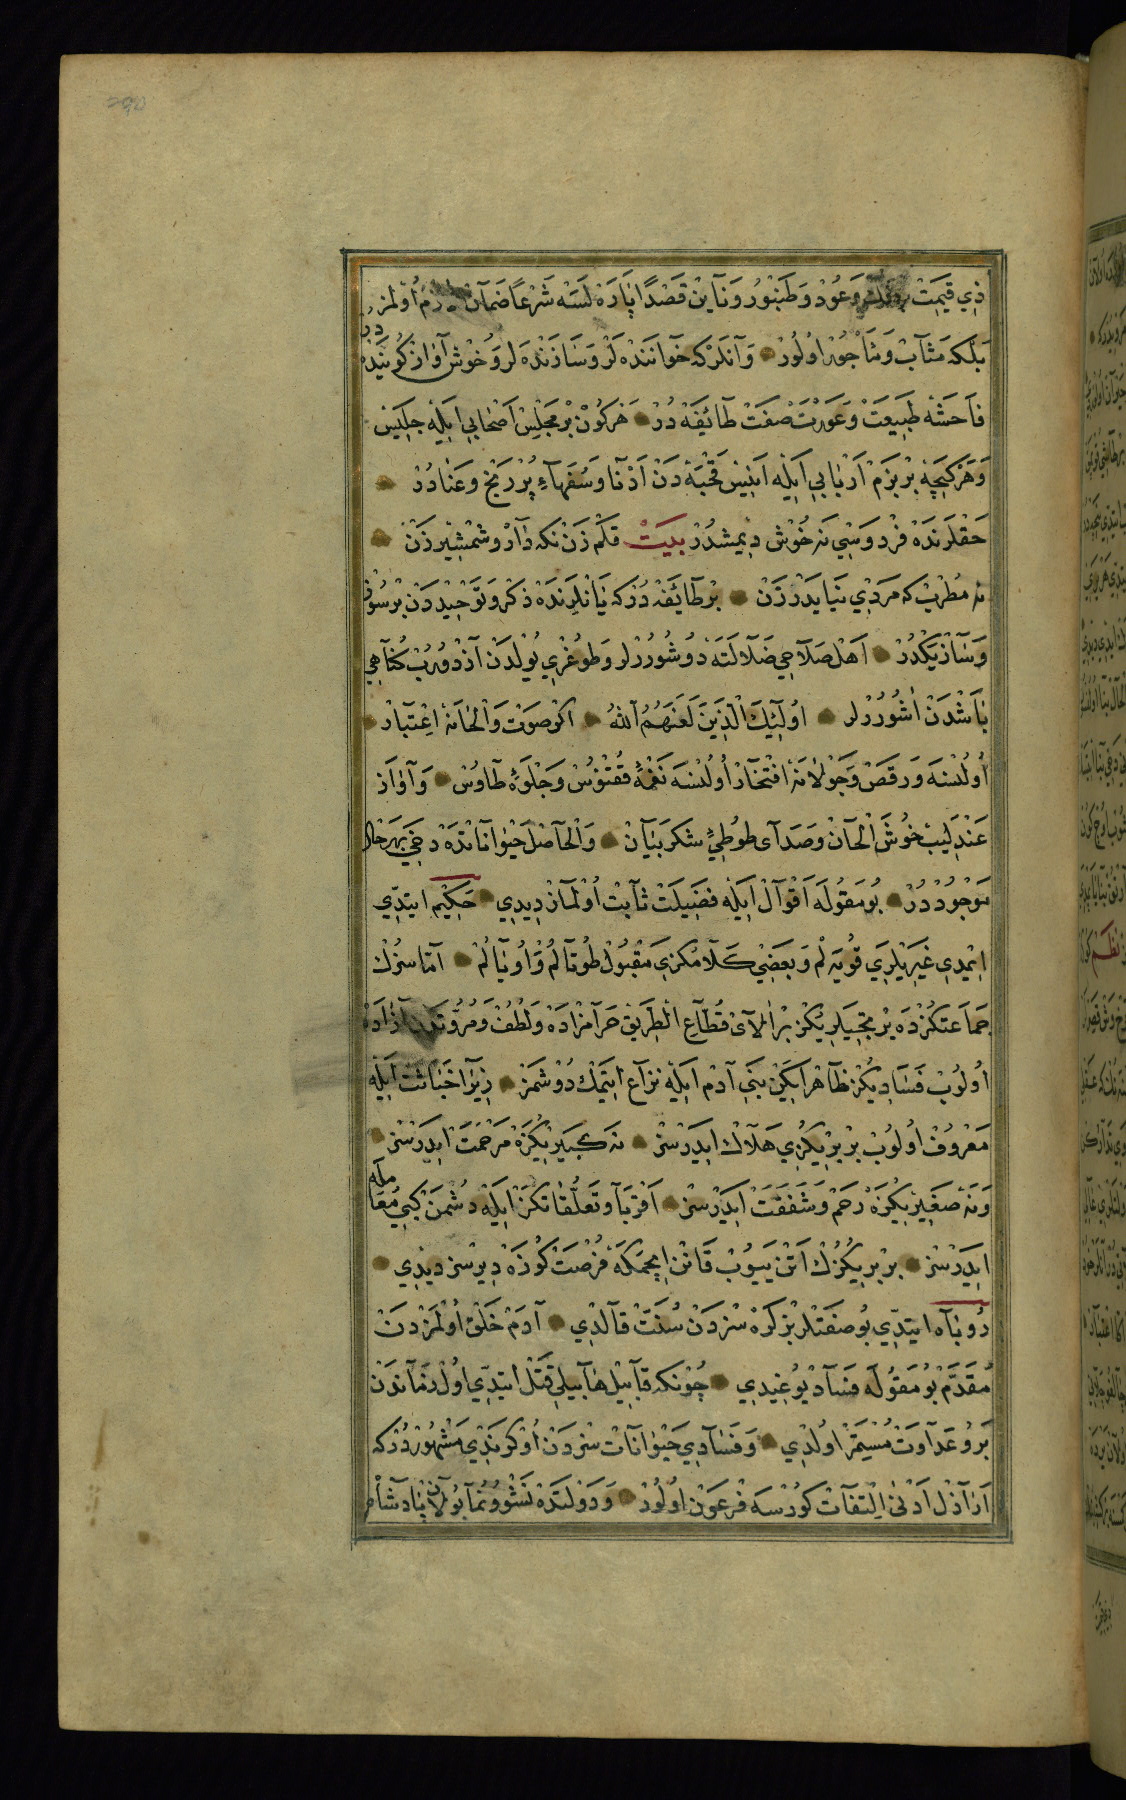 ذِي قِيمَتْ وَعُودْ وَطَنْبُورْ وَنَايِنْ قَصْدًا پَارَهْ لَسَهْ شَرْعًا ضَمَآنْ لَازِمْ اُولْمَزْ
بَلْكَه مَثَابْ وَمَأْجُورْ اُولُورْ وَآنْلَرْكه خَوَآنَنْدَه لَرْ وَسَازَنْدَه لَر وَخُوشْ آوَازْ كُويَنْدَه لَرْ
فَاحَشَه طَبِيعَتْ وَعَوْرَتْ صِفَتْ طَائِفَهْ دُرْ هَرْكُونْ بِرْ مَجْلِسْ اَصْحَابِي اِيلَه جَلِيسْ
وَهَرْ كِيجَه بِرْ بَزْمْ اَرْبَابِي اِيلَه اَنِيسْ قَحْبَه دَنْ اَدْنَا وَسُفَهَآءِ پُرْ رَنْجْ وَعَنَا دُرْ
حَقْلَرِنْدَه فِرْدَوسِي نَه خُوشْ دِيمِشْدُرْ بَيتْ قَلَمْ زَنْ نِكَه دَآرْ و شَمْشِيرْ زَنْ
نَه مُطْرِبْ كه مَرْدِي نَيَايَدْ زِزَنْ بِرْ طَآئِفَه دُرْكه يَانْلَرِنْدَه ذِكْر وَتَوْحِيدْ دَنْ بِرْ سُوزْ
وَسَازْ يَكْدُرْ اَهْلِ صَلَاحِي ضَلَالَتَه دُوشُورُرْلَر وَطوُغْرِي يُولْدَنْ آزْدُورُبْ كُنَاهِي
بَاشْدَنْ اَشُورُرْلَر اُولَئِكَ الَّذِينَ لَعَنَهُمُ اللّٰهُ اكَرْ صَوْتْ وَاَلْحَانَه اِعْتِبَارْ
اُولُنْسَه وَرَقْصْ وَجَوْلَانَه اِفْتِخَارْ اُولُنْسَه نَغْمَۀ قُقْنُوسْ وَجِلْوَۀ طَاوُسْ وَآوَازِ
عَنْدَلِيبْ خُوشْ اَلْحَانْ وَصَدَآى طُوطِئِ شَكَرْ بَيَانْ وَالْحَاصِلْ حَيْوَانَاتْدَه دَخِي بَهَرْ حَالْ
مَوْجُودْ دُرْ بُو مَقُولَه اَقْوَالْ اِيلَه فَضِيلَتْ ثَابِتْ اُولْمَازْ دِيدِي حَكِيمْ ايتدِّي
اِيمْدِي غَيرِيلَرِي قُويَه لُمْ وَبَعْضِي كَلَامُكزِي مَقْبُولْ طُوتَالُمْ وَاُويَالُمْ اَمَّا سِزُكْ
جَمَاعَتكُزْدَه يِرْتِجِيلَرِيكُزْ بِرْ اَلَآىْ قُطَّاعِ الطَّرِيقْ حَرَامْزَادَه وَلُطْفْ وَمُرُوَّتدَنْ آزَادَه
اُولُوبْ فَسَادِيكُزْ ظَاهِرْ اِيكَنْ بَنِي آدَمْ اِيلَه نِزَاعْ اِيتْمَكْ دُوشْمَزْ زِيرَا خَبَاثَتْ اِيلَه
مَعْرُوفْ اُولُوبْ بِرْبِرِيكُزِي هَلَاكْ اِيدَرْسِزْ نَه كَبِيرِيكُزَه مَرْحَمَتْ اِيدَرْسِزْ
وَنَه صَغِيرِيكُزَه رَحْمْ وَشَفَقَتْ اِيدَرْسِزْ اَقْرِبَا وتَعَلُّقَاتكزْ اِيلَه دُشْمَنْ كِبِي مُعَامَلَه
اِيدَرْسِزْ بِرْبِرِيكُزُكْ اَتِنْ يَيُوبْ قَانِنْ اِيچْمَكَه فُرْصَتْ كُوزَه دِيرْسِزْ دِيدِي
رُوبَاه ايتدِّي بُو صِفَتْلَر بِزْكَرَه سِزْدَنْ سُنَّتْ قَالْدِي آدَمْ خَلْق اُولْمَزْدَنْ
مُقَدَّمْ بُو مَقُولَه فَسَادْ يُوغِيدِي چُونكه قَابِيلْ هَابِيلِي قَتْلْ ايتدِّي اُولْ زَمَانْدَنْ
بَرُو عَدَاوَتْ مُسْتَمَرْ اُولْدِي وَفَسَادِي حَيْوَانَاتْ سِزْدَنْ اُوكْرَنْدِي مَشْهُورْدُرْكه
اَرَاذِلْ اَدْنَى اِلْتِفَاتْ كُورْسَه فِرْعَوْنْ اُولُورْ وَدَوْلَتدَه نَشْو وُنُمَا بُولَانْ پَادِشَاهْ